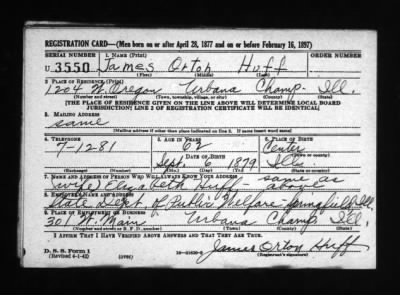 REGISTRATION CARD—(Men born on or after April 28, 1877 and on or before February 16, 1897)
SERIAL NUMBER 1. NAME (Print) ORDER NUMBER
U 3550 James Orton Huff
(First) (Middle) (Last)
2. PLACE OF RESIDENCE (Print)
1204 W. Oregon Urbana Champ. Ill.
(Number and street) (Town, township, village, or city) (County) (State)
[THE PLACE OF RESIDENCE GIVEN ON THE LINE ABOVE WILL DETERMINE LOCAL BOARD
JURISDICTION; LINE 2 OF REGISTRATION CERTIFICATE WILL BE IDENTICAL]
3. MAILING ADDRESS
same
[Mailing address if other than place indicated on line 2. If same insert word same]
4. TELEPHONE 5. AGE IN YEARS 6. PLACE OF BIRTH
7-1281 62 Center
DATE OF BIRTH (Town or county)
Sept. 6 1879 Ills
(Exchange) (Number) (Mo.) (Day) (Yr.) (State or country)
7. NAME AND ADDRESS OF PERSON WHO WILL ALWAYS KNOW YOUR ADDRESS
(wife) Elizabeth Huff - same as above
8. EMPLOYER'S NAME AND ADDRESS
State Dept. of Public Welfare - Springfield Ill.
9. PLACE OF EMPLOYMENT OR BUSINESS
301 W. Main Urbana Champ. Ill.
(Number and street or R. F. D. number) (Town) (County) (State)
I AFFIRM THAT I HAVE VERIFIED ABOVE ANSWERS AND THAT THEY ARE TRUE.
James Orton Huff
D. S. S. Form 1
(Revised 4-1-42) (over) (Registrant's signature)